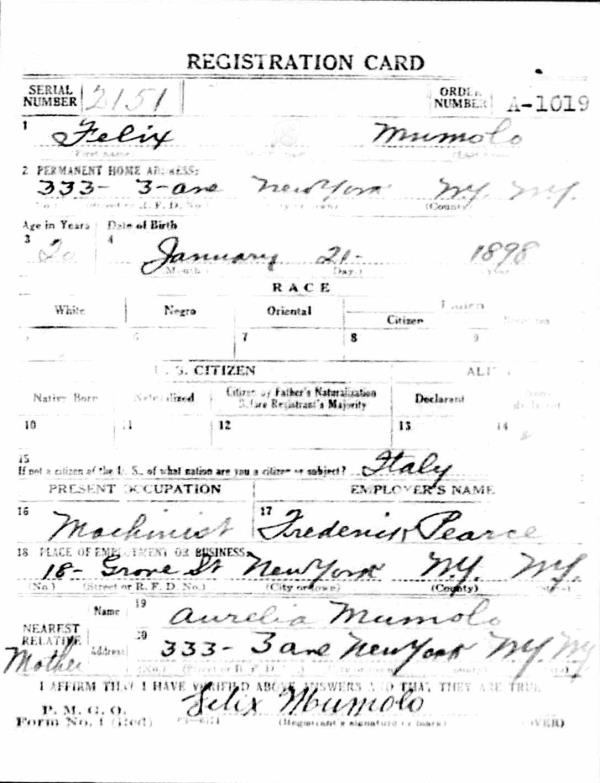 REGISTRATION CARD
SERIAL NUMBER 2151 ORDER NUMBER A-1019
1 Felix Mumolo
2 PERMANENT HOME ADDRESS:
333- 3-ave New York N.Y. N.Y.
(No.) (Street or R. F. D. No.) (City or town) (County)
Age in Years Date of Birth
3 20 4 January 21- 1898
(Month) (Day) Year
RACE
White Negro Oriental Citizen
5 6 7 8 9
U. S. CITIZEN ALIEN
Native Born Naturalized Citizen by Father's Naturalization Before Registrant's Majority Declarant
10 11 12 13 14
15
If not a citizen of the U. S., of what nation are you a citizen or subject? Italy
PRESENT OCCUPATION EMPLOYER'S NAME
16 Machinist 17 Frederick Pearce
18 PLACE OF EMPLOYMENT OR BUSINESS:
18- Grove St New York N.Y. N.Y.
(No.) (Street or R. F. D. No.) (City or town) (County) (State)
NEAREST RELATIVE Name 19 Aurelia Mumolo
Mother Address 20 333- 3 ave New York N.Y. N.Y.
(No.) (Street or R. F. D. No.)
I AFFIRM THAT I HAVE VERIFIED ABOVE ANSWERS AND THAT THEY ARE TRUE
P. M. G. O.
Form No. 1 (Red) Felix Mumolo
(Registrant's signature or mark) (OVER)